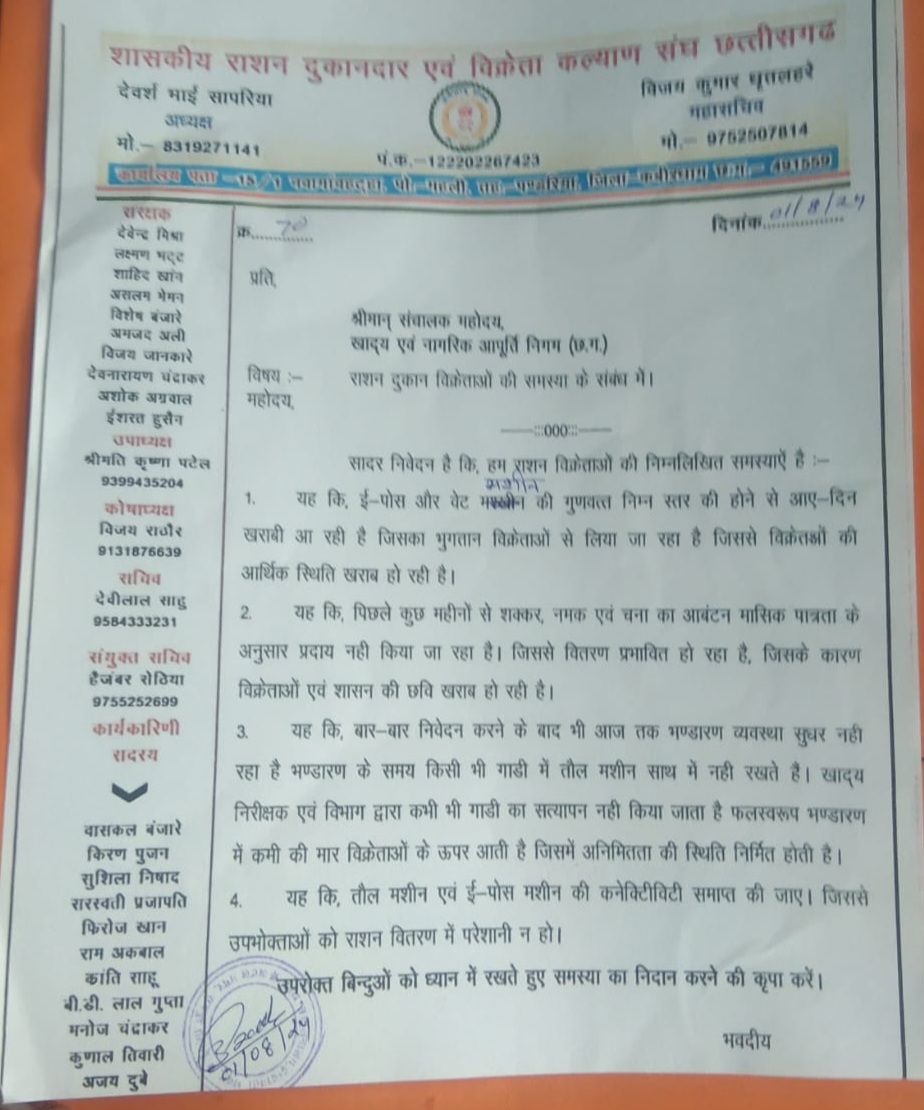 शासकीय राशन दुकानदार एवं विक्रेता कल्याण संघ छत्तीसगढ
देवर्श भाई सापरिया
अध्यक्ष
मो.– 8319271141
विजय कुमार धृतलहरे
महासचिव
मो.– 9752507814
पं.क.–122202267423
कार्यालय पता –15/1 पो.– तह– पण्डरिया, जिला– कबीरधाम छ.ग.– 491559
संरक्षक
देवेन्द्र मिश्रा
लक्ष्मण भट्ट
शाहिद खांन
असलम मेमन
विशेष बंजारे
अमजद अली
विजय जानकारे
देवनारायण चंद्राकर
अशोक अग्रवाल
ईशरत हुसैन
उपाध्यक्ष
श्रीमति कृष्णा पटेल
9399435204
कोषाध्यक्ष
विजय राठौर
9131876639
सचिव
देवीलाल साहु
9584333231
संयुक्त सचिव
हैजंबर सेठिया
9755252699
कार्यकारिणी
सदस्य
वासकल बंजारे
किरण पुजन
सुशिला निषाद
सरस्वती प्रजापति
फिरोज खान
राम अकबाल
कांति साहू
बी.डी. लाल गुप्ता
मनोज चंद्राकर
कुणाल तिवारी
अजय दुबे
क्र......70......
दिनांक..01/8/24
प्रति,
श्रीमान् संचालक महोदय,
खाद्य एवं नागरिक आपूर्ति निगम (छ.ग.)
विषय :– राशन दुकान विक्रेताओं की समस्या के संबंध में।
महोदय,
——:::000:::——
सादर निवेदन है कि, हम राशन विक्रेताओं की निम्नलिखित समस्याऐं है :–
मशीन
1. यह कि, ई–पोस और वेट की गुणवत्त निम्न स्तर की होने से आए–दिन
खराबी आ रही है जिसका भुगतान विक्रेताओं से लिया जा रहा है जिससे विक्रेतओं की
आर्थिक स्थिति खराब हो रही है।
2. यह कि, पिछले कुछ महीनों से शक्कर, नमक एवं चना का आबंटन मासिक पात्रता के
अनुसार प्रदाय नही किया जा रहा है। जिससे वितरण प्रभावित हो रहा है, जिसके कारण
विक्रेताओं एवं शासन की छवि खराब हो रही है।
3. यह कि, बार–बार निवेदन करने के बाद भी आज तक भण्डारण व्यवस्था सुधर नही
रहा है भण्डारण के समय किसी भी गाडी में तौल मशीन साथ में नही रखते हैं। खाद्य
निरीक्षक एवं विभाग द्वारा कभी भी गाडी का सत्यापन नही किया जाता है फलस्वरूप भण्डारण
में कमी की मार विक्रेताओं के ऊपर आती है जिसमें अनिमितता की स्थिति निर्मित होती है।
4. यह कि, तौल मशीन एवं ई–पोस मशीन की कनेक्टिीविटी समाप्त की जाए। जिससे
उपभोक्ताओं को राशन वितरण में परेशानी न हो।
उपरोक्त बिन्दुओं को ध्यान में रखते हुए समस्या का निदान करने की कृपा करें।
01/08/24
भवदीय